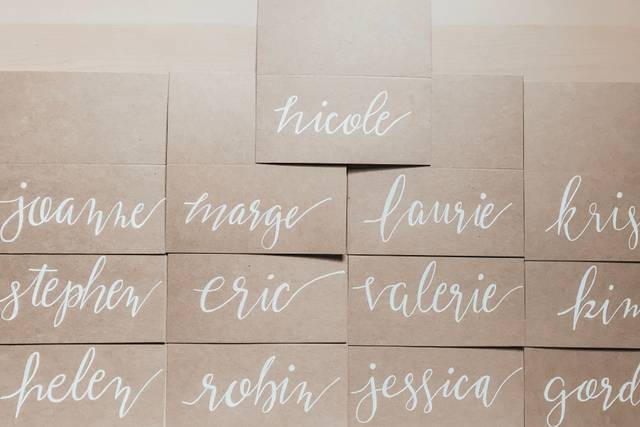 nicole
joanne marge laurie kris
stephen eric valerie kim
helen robin jessica gord